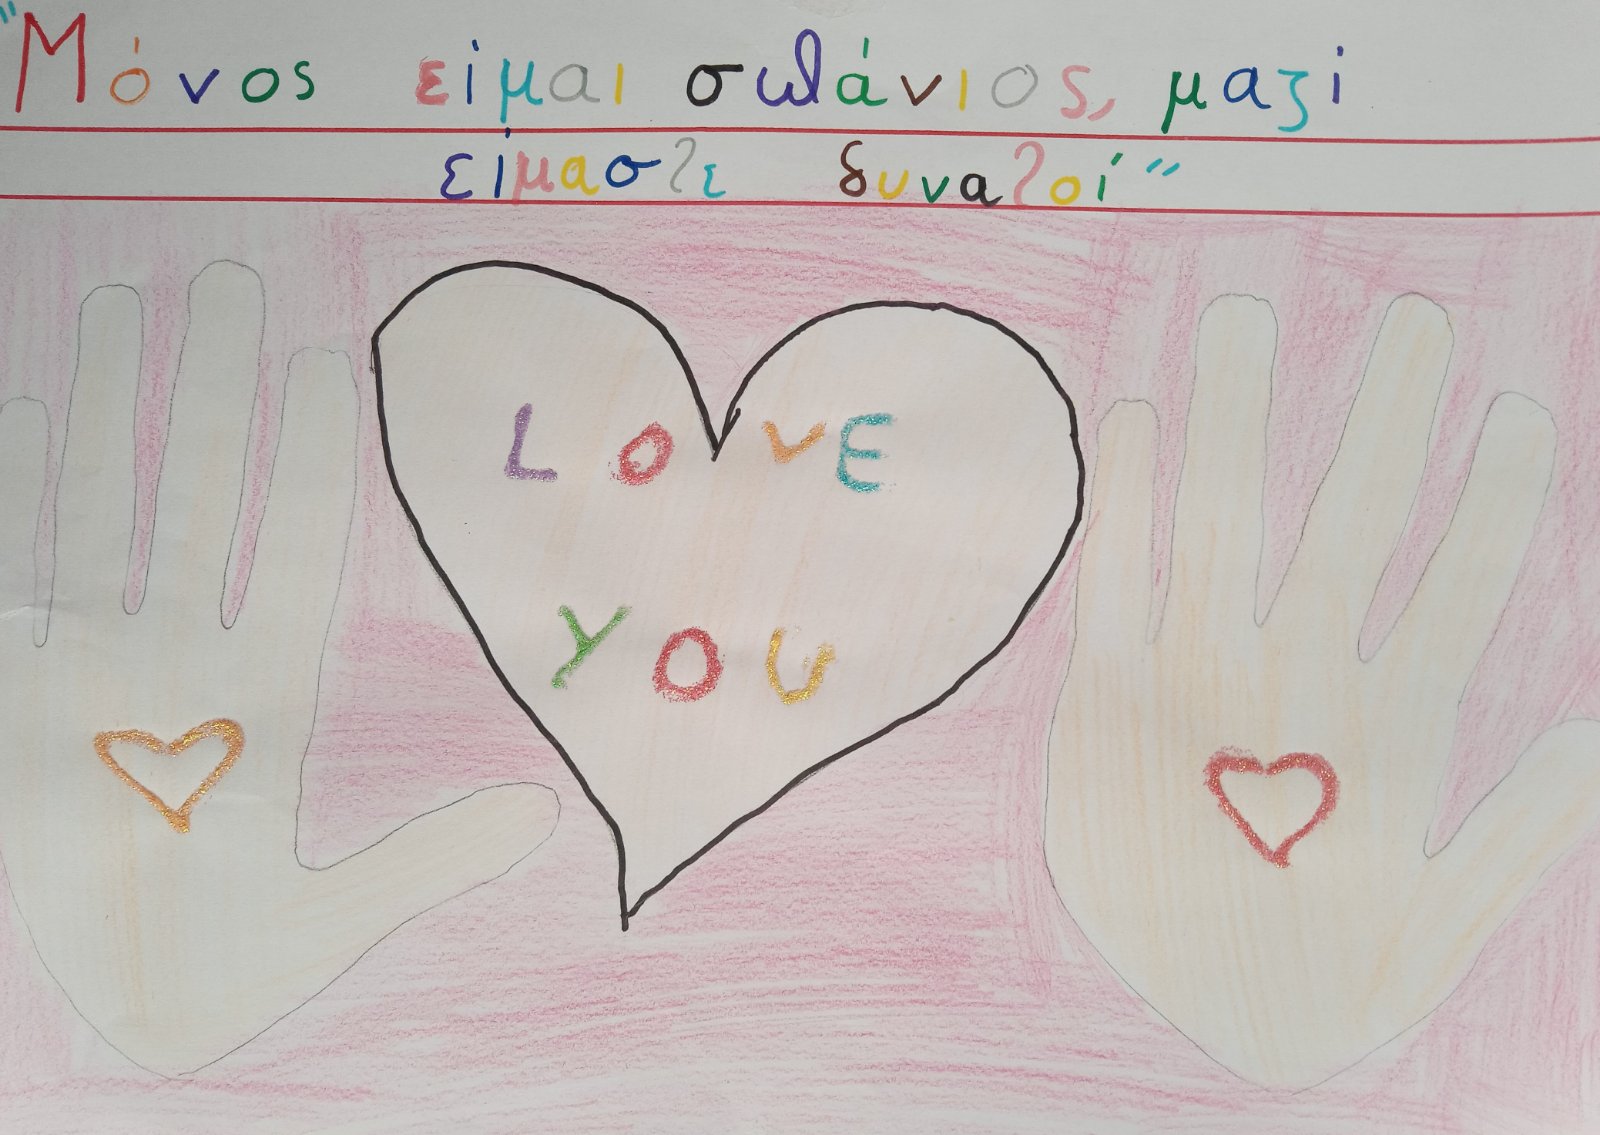 "Μόνος είμαι σπάνιος, μαζί
είμαστε δυνατοί"
LOVE
YOU